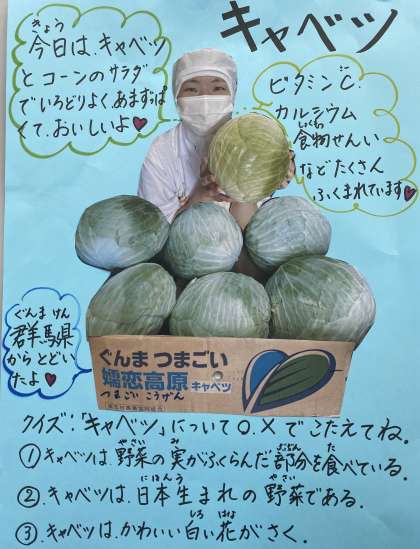 キャベツ
今日は、キャベツ
とコーンのサラダ
でいろどりよく、あまずっぱ
くて、おいしいよ♥
ビタミンC、
カルシウム
食物せんい
などたくさん
ふくまれています♥
群馬県
からとどい
たよ♥
ぐんま つまごい
嬬恋高原 キャベツ
つまごいこうげん
クイズ:「キャベツ」について○、×でこたえてね。
①キャベツは、野菜の実がふくらんだ部分を食べている。
②キャベツは、日本生まれの野菜である。
③キャベツは、かわいい白い花がさく。